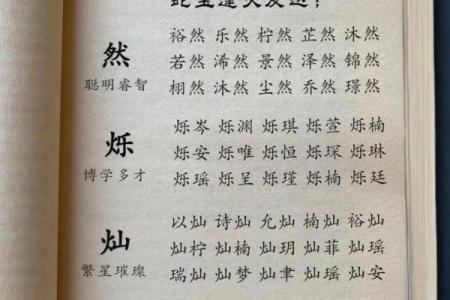 蛇宝逢关友边！
然
聪明睿智
裕然 乐然 柠然 芷然 沐然
若然 浠然 景然 泽然 锦然
栩然 沐然 尘然 乔然 璟然
烁
博学多才
烁岑 烁渊 烁琪 烁萱 烁楠
烁安 烁唯 烁恒 烁琛 烁琳
烁瑶 烁呈 烁瑾 烁楠 烁廷
灿
繁星璀璨
以灿 诗灿 允灿 楠灿 裕灿
灿柠 灿楠 灿玥 灿菲 灿瑶
瑞灿 灿梦 灿聿 灿瑶 灿安